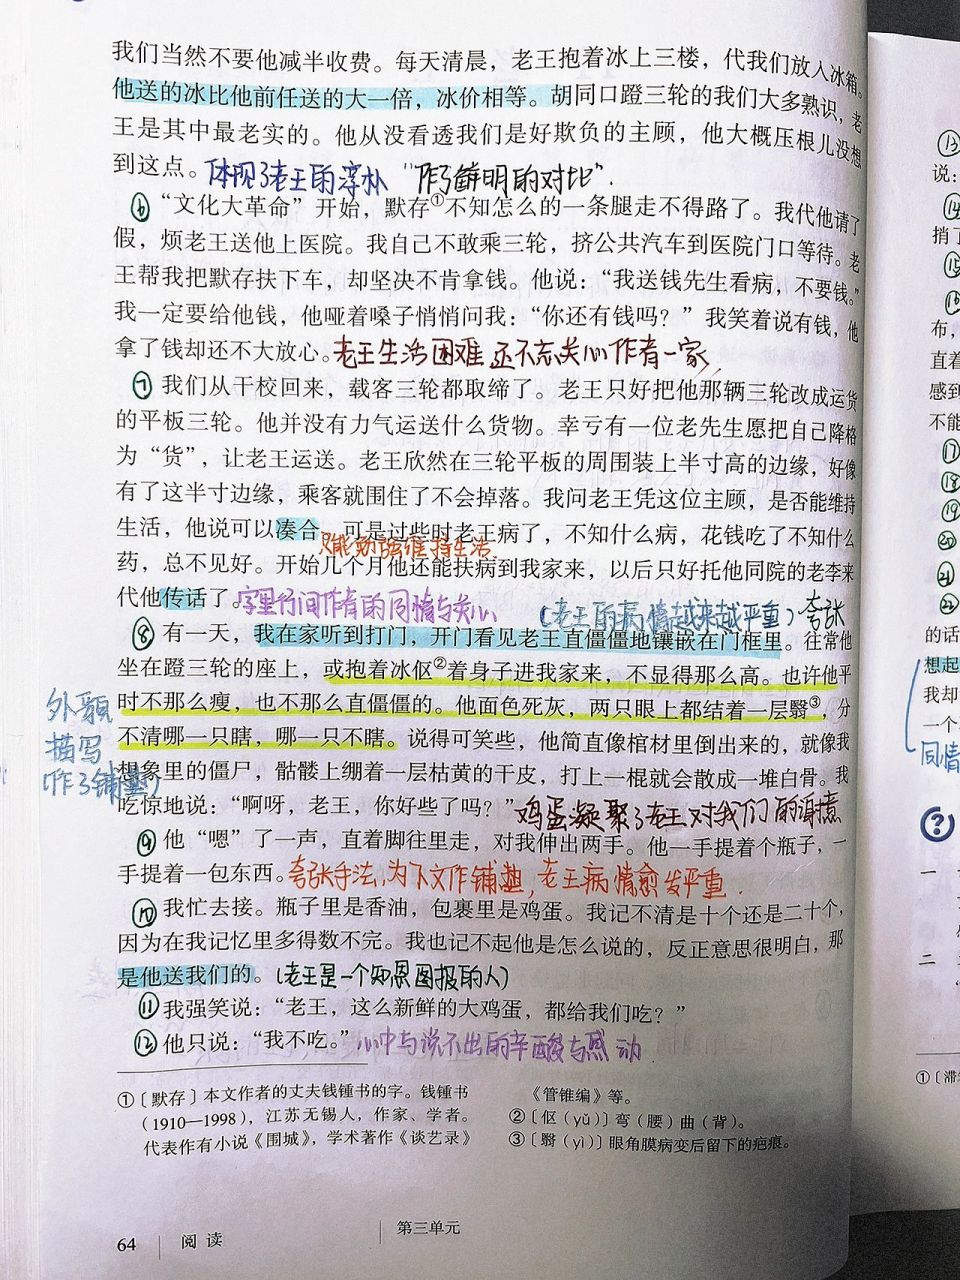 我们当然不要他减半收费。每天清晨，老王抱着冰上三楼，代我们放入冰箱。
他送的冰比他前任送的大一倍，冰价相等。胡同口蹬三轮的我们大多熟识，老
王是其中最老实的。他从没看透我们是好欺负的主顾，他大概压根儿没想
到这点。体现了老王的淳朴 “作了鲜明的对比”.
⑥ “文化大革命”开始，默存①不知怎么的一条腿走不得路了。我代他请了
假，烦老王送他上医院。我自己不敢乘三轮，挤公共汽车到医院门口等待。老
王帮我把默存扶下车，却坚决不肯拿钱。他说：“我送钱先生看病，不要钱。”
我一定要给他钱，他哑着嗓子悄悄问我：“你还有钱吗？”我笑着说有钱，他
拿了钱却还不大放心。老王生活困难还不忘关心作者一家
⑦ 我们从干校回来，载客三轮都取缔了。老王只好把他那辆三轮改成运货
的平板三轮。他并没有力气运送什么货物。幸亏有一位老先生愿把自己降格
为“货”，让老王运送。老王欣然在三轮平板的周围装上半寸高的边缘，好像
有了这半寸边缘，乘客就围住了不会掉落。我问老王凭这位主顾，是否能维持
生活，他说可以凑合。可是过些时老王病了，不知什么病，花钱吃了不知什么
只能勉强维持生活
药，总不见好。开始几个月他还能扶病到我家来，以后只好托他同院的老李来
代他传话了。字里行间作者的同情与关心 (老王的病情越来越严重) 夸张
⑧ 有一天，我在家听到打门，开门看见老王直僵僵地镶嵌在门框里。往常他
坐在蹬三轮的座上，或抱着冰伛②着身子进我家来，不显得那么高。也许他平
时不那么瘦，也不那么直僵僵的。他面色死灰，两只眼上都结着一层翳③，分
不清哪一只瞎，哪一只不瞎。说得可笑些，他简直像棺材里倒出来的，就像我
想象里的僵尸，骷髅上绷着一层枯黄的干皮，打上一棍就会散成一堆白骨。我
吃惊地说：“啊呀，老王，你好些了吗？”鸡蛋凝聚了老王对我们的
外貌
描写
(作了铺垫)
⑨ 他“嗯”了一声，直着脚往里走，对我伸出两手。他一手提着个瓶子，一
手提着一包东西。夸张手法,为下文作铺垫,老王病情愈发严重.
⑩ 我忙去接。瓶子里是香油，包裹里是鸡蛋。我记不清是十个还是二十个，
因为在我记忆里多得数不完。我也记不起他是怎么说的，反正意思很明白，那
是他送我们的。(老王是一个知恩图报的人)
⑪ 我强笑说：“老王，这么新鲜的大鸡蛋，都给我们吃？”
⑫ 他只说：“我不吃。”心中与说不出的辛酸与感动
①〔默存〕本文作者的丈夫钱锺书的字。钱锺书
（1910—1998），江苏无锡人，作家、学者。
代表作有小说《围城》，学术著作《谈艺录》
《管锥编》等。
②〔伛（yǔ）〕弯（腰）曲（背）。
③〔翳（yì）〕眼角膜病变后留下的疤痕。
64 阅读
第三单元
⑬
说：
⑭
捎了
⑮
⑯
布，
直着
感到
不能
⑰
⑱
⑲
⑳
㉑
㉒
的话
想起
我却
一个
同情
?
一
二
①〔滞